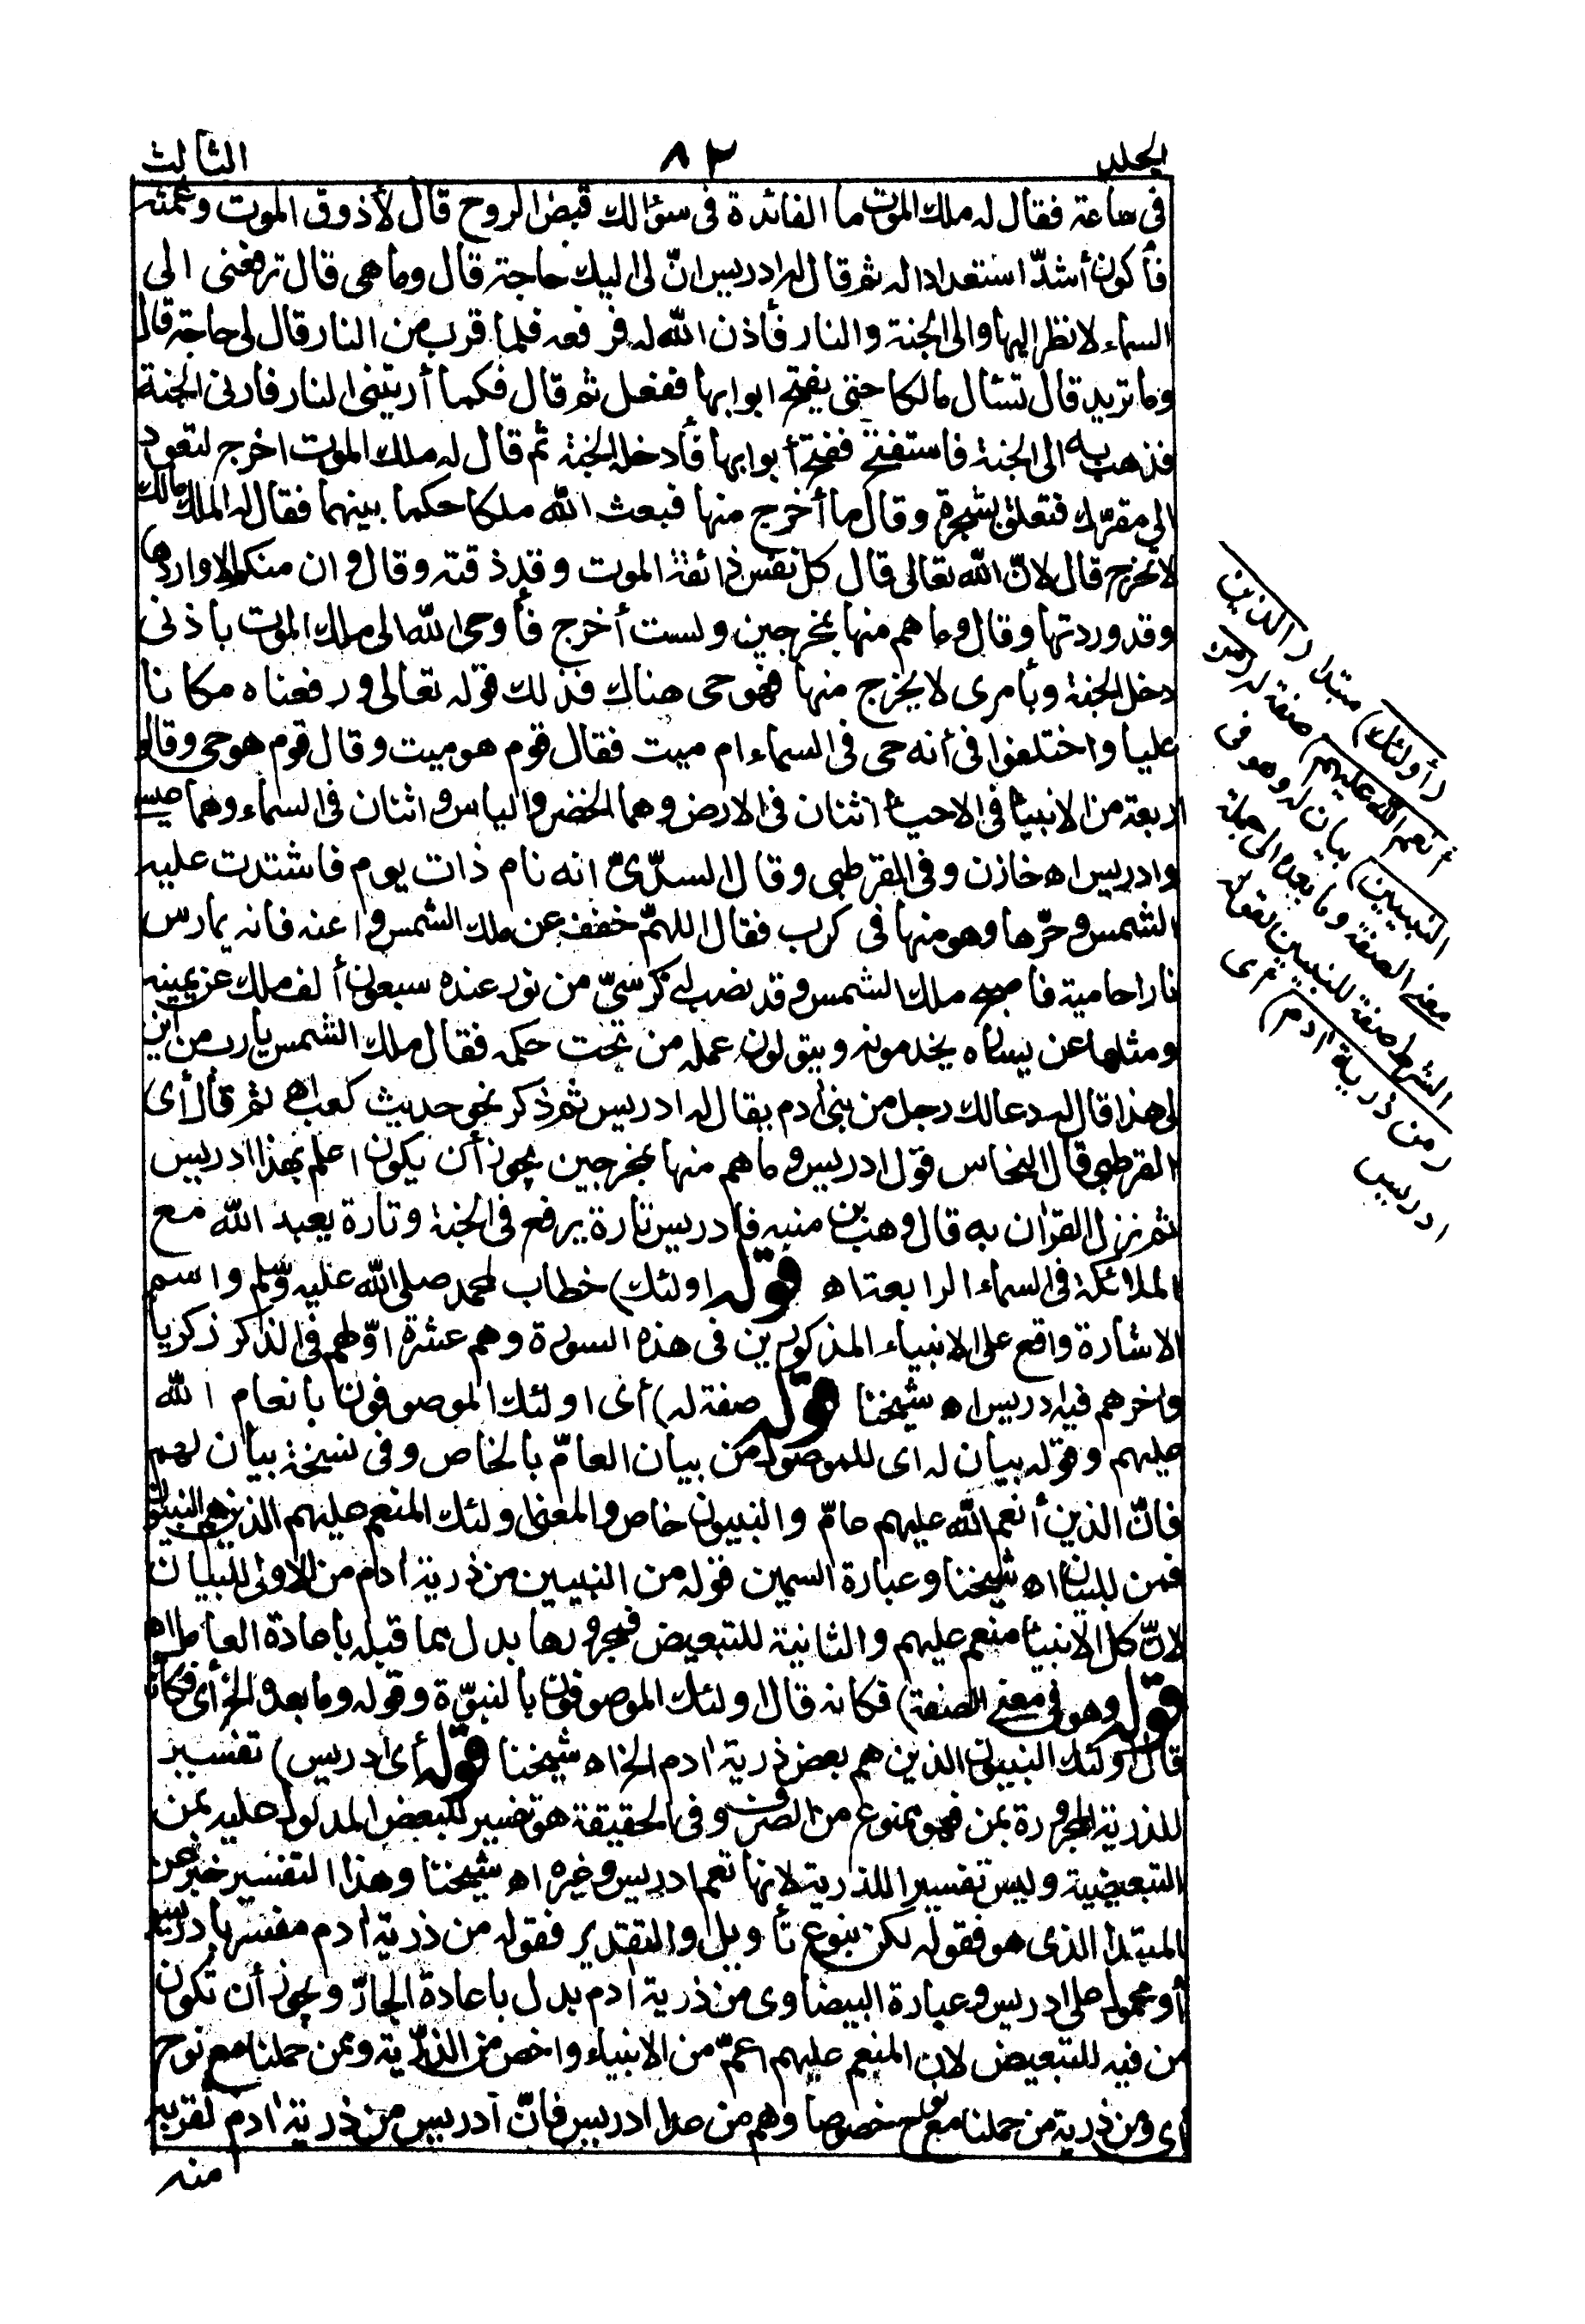 المجلد ٨٢ الثالث
فى ساعة فقال له ملك الموت ما الفائدة فى سؤالك قبض الروح قال لأذوق الموت وغمته
فأكون أشدّ استعدادا له ثم قال له ادريس انّ لى اليك حاجة قال وما هى قال ترفعنى الى
السماء لانظر اليها والى الجنة والنار فأذن الله له فرفعه فلما قرب من النار قال لى حاجة قال
وما تريد قال تسئال مالكا حتى يفتح ابوابها ففعل ثم قال فكما أريتنى النار فارنى الجنة
فذهب به الى الجنة فاستفتح ففتح أبوابها فأدخله الجنة ثم قال له ملك الموت اخرج لتعود
الى مقرّك فتعلق بشجرة وقال ما أخرج منها فبعث الله ملكا حكما بينهما فقال له الملك مالك
لا تخرج قال لانّ الله تعالى قال كل نفس ذائقة الموت وقد ذقته وقال وان منكم الا واردها
وقد وردتها وقال وما هم منها بمخرجين ولست أخرج فأوحى الله الى ملك الموت باذنى
دخل الجنة وبأمرى لا يخرج منها فهو حى هناك فذلك قوله تعالى ورفعناه مكانا
عليا واختلفوا فى أنه حى فى السماء ام ميت فقال قوم هو ميت وقال قوم هو حى وقالوا
اربعة من الانبياء فى الاحياء اثنان فى الارض وهما الخضر والياس واثنان فى السماء وهما عيسى
وادريس اه خازن وفى القرطبى وقال السدّىّ انه نام ذات يوم فاشتدت عليه
الشمس وحرّها وهو منها فى كرب فقال اللهمّ خفف عن ملك الشمس واعنه فانه يمارس
نارا حامية فاصبح ملك الشمس وقد نصب له كرسىّ من نور عنده سبعون ألف ملك عن يمينه
ومثلها عن يساره يخدمونه ويتولون عمله من تحت حكمه فقال ملك الشمس يا رب من أين
لى هذا قال له دعا لك رجل من بنى ادم يقال له ادريس ثم ذكر نحو حديث كعب اه ثم قال أى
القرطبى قال النحاس قول ادريس وما هم منها بمخرجين يجوز أن يكون اعلم بهذا ادريس
ثم نزل القران به قال وهب بن منبه فادريس تارة يرفع فى الجنة وتارة يعبد الله مع
الملائكة فى السماء الرابعة اه قوله اولئك) خطاب لمحمد صلى الله عليه وسلم واسم
الاشارة واقع على الانبياء المذكورين فى هذه السورة وهم عشرة اوّلهم فى الذكر زكريا
واخرهم فيه ادريس اه شيخنا قوله صفة له) أى اولئك الموصوفون بانعام الله
عليهم وقوله بيان له اى للموصول من بيان العامّ بالخاص وفى نسخة بيان لهم
فانّ الذين أنعم الله عليهم عامّ والنبيون خاص والمعنى اولئك المنعم عليهم الذين هم النبيون
فمن للبيان اه شيخنا وعبارة السمين قوله من النبيين من ذرية ادم من الاولى للبيان
لانّ كل الانبياء منعم عليهم والثانية للتبعيض فمجرورها بدل مما قبله باعادة العامل اه
قوله وهو فى معنى الصفة) فكانه قال اولئك الموصوفون بالنبوّة وقوله وما بعده الخ أى فكانه
قال اولئك النبيون الذين هم بعض ذرية ادم الخ اه شيخنا قوله أى ادريس) تفسير
للذرية المجرورة بمن فهو ممنوع من الصرف وفى الحقيقة هو تفسير للبعض المدلول عليه بمن
التبعيضية وليس تفسيرا للذرية لانها تعم ادريس وغيره اه شيخنا وهذا التفسير خبر عن
المبتدا الذى هو فقوله لكن بنوع تأويل والتقدير فقوله من ذرية ادم مفسر بادريس
أو محمول على ادريس وعبارة البيضاوى من ذرية ادم بدل باعادة الجارّ ويجوز أن تكون
من فيه للتبعيض لان المنعم عليهم اعمّ من الانبياء واخص من الذرّية وممن حملنا مع نوح
اى ومن ذرية من حملنا مع نوح خصوصا وهم من عدا ادريس فانّ ادريس من ذرية ادم لقربه
منه
(أولئك) مبتدا (الذين
أنعم الله عليهم) صفة له (من
النبيين) بيان له وهو فى
معنى الصفة وما بعده الى جملة
الشرط صفة للنبيين فقوله
(من ذرية ادم) أى
ادريس